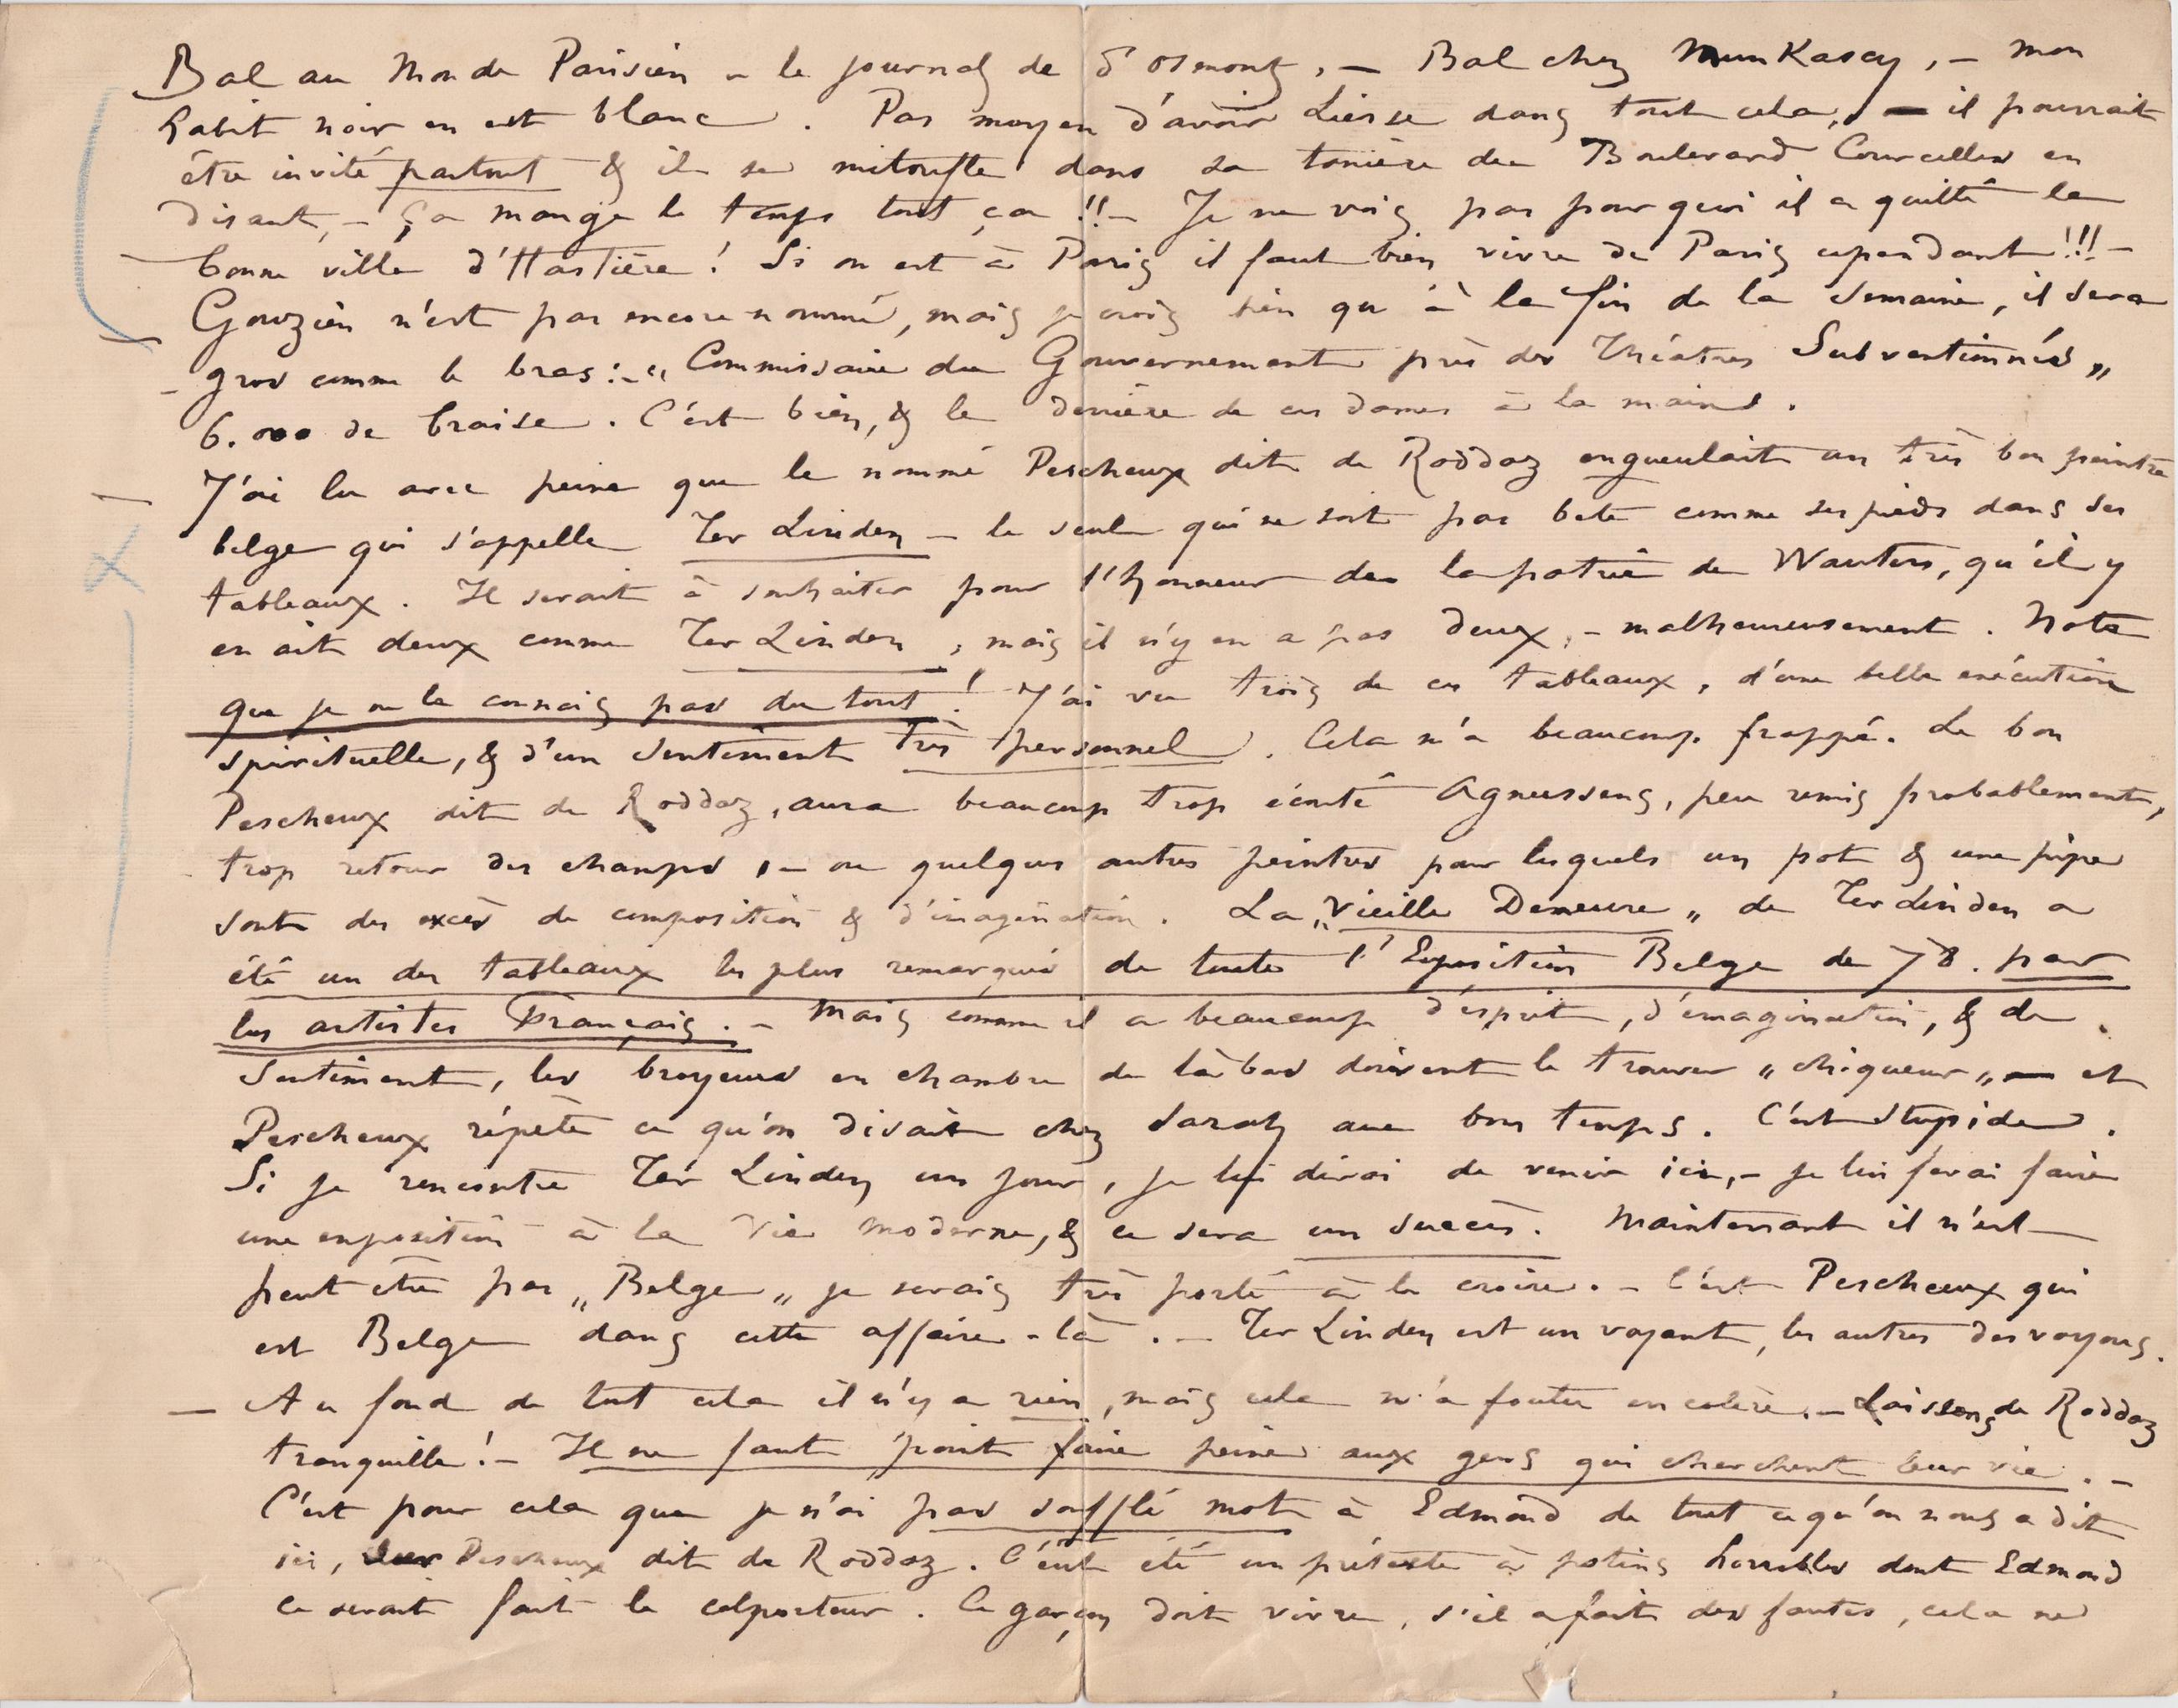 Bal au Monde Parisien – le journal de d'Osmont, – Bal chez Munkascy, – mon
habit noir en est blanc. Pas moyen d'avoir Liesse dans tout cela, – il pourrait
être invité partout & il se mitoufle dans sa tanière du Boulevard Courcelles en
disant, – ça mange le temps tout ça !! – Je ne vois pas pourquoi il a quitté la
bonne ville d'Hastière ! Si on est à Paris il faut bien vivre de Paris cependant !!! –
Gouzien n'est pas encore nommé, mais je crois bien qu'à la fin de la semaine, il sera
gros comme le bras : – „ Commissaire du Gouvernement près des Théatres Subventionnés „
6.000 de braise. C'est bien, & le derrière de ces dames à la main.
J'ai lu avec peine que le nommé Pescheux dit de Roddaz engueulait un très bon peintre
belge qui s'appelle Ter Linden – le seul qui ne soit pas bete comme ses pieds dans ses
tableaux. Il serait à souhaiter pour l'honneur de la patrie de Wauters, qu'il y
en ait deux comme Ter Linden, mais il n'y en a pas deux, – malheureusement. Note
que je ne le connais pas du tout ! J'ai vu trois de ces tableaux, d'une belle exécution
spirituelle, & d'un sentiment très personnel. Cela m'a beaucoup frappé. Le bon
Pescheux dit de Roddaz, aura beaucoup trop écouté Agneessens, peu remis probablement,
trop retour des champs, – ou quelques autres peintres pour lesquels un pot & une pipe
sont des excès de composition & d'imagination. La „Vieille Demeure „ de Ter Linden a
été un des tableaux les plus remarqués de toute l'Exposition Belge de 78. par
les artistes Français. – Mais comme il a beaucoup d'esprit, d'imagination, & de
sentiment, les broyeurs en chambre de là bas doivent le trouver „ chiqueur „ – et
Pescheux répète ce qu'on disait chez Sarah au bon temps. C'est stupide.
Si je rencontre Ter Linden un jour, je lui dirai de venir ici, – je lui ferai faire
une exposition à la Vie Moderne, & ce sera un succès. Maintenant il n'est
peut être pas „ Belge „ je serais très porté à le croire. – C'est Pescheux qui
est Belge dans cette affaire-là. – Ter Linden est un voyant, les autres des voyous.
– Au fond de tout cela il n'y a rien, mais cela m'a foutu en colère. – Laissons de Roddaz
tranquille ! – Il ne faut point faire peine aux gens qui cherchent leur vie. –
C'est pour cela que je n'ai pas soufflé mot à Edmond de tout ce qu'on nous a dit
ici, sur Pescheux dit de Roddaz. C'eût été un prétexte à potins horribles dont Edmond
ce serait fait le colporteur. Ce garçon doit vivre, s'il a fait des fautes, cela ne